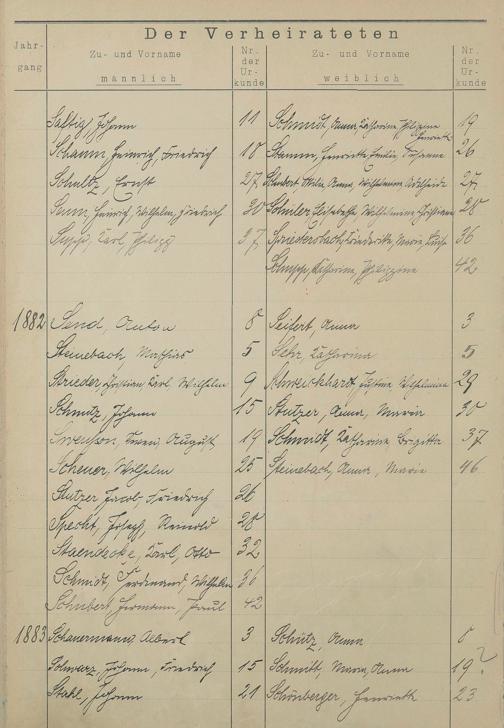 Der Verheirateten
Jahr- Zu- und Vorname Nr. Zu- und Vorname Nr.
gang männlich der weiblich der
Ur- Ur-
kunde kunde
Saftig, Johann 11 Schmidt, Anna, Katharina, Philippine 19
Henriette
Schamm, Heinrich, Friedrich 18 Stamm, Henriette, Emilie, Susanne 26
Schultz, Ernst 27 Schubert, Anna, Wilhelmine, Adelheide 27
Senn, Heinrich, Wilhelm, Friedrich 30 Elisabetha, Wilhelmine, Christiane 28
Karl, Philipp 37 Friederike, Marie, Luise 36
Katharina, Philippine 42
1882 Send, Anton 8 Seifert, Anna 3
Steinebach Mathias 5 Sehr, Katharina 5
Strieder, Christian, Karl, Wilhelm 9 Schweickhardt, Justine, Wilhelmine 29
Schmutz, Johann 15 Stutzer, Anna, Maria 30
Swenson, Swen, August 19 Schmidt, Katharina Brigitta 37
Scheuer, Wilhelm 25 Steinebach, Anna, Marie 46
Stutzer Jacob, Friedrich 26
Specht, Joseph, Reinold 28
Staendecke, Karl, Otto 32
Schmidt, Ferdinand, Wilhelm 36
Schubert, Hermann, Paul 42
1883 Schauermann, Albert 3 Schütz, Anna
Schwarz, Johann, Friedrich 15 Schmitt, Maria, Anna 19?
Stahl, Johann 21 Schönberger, Henriette 23